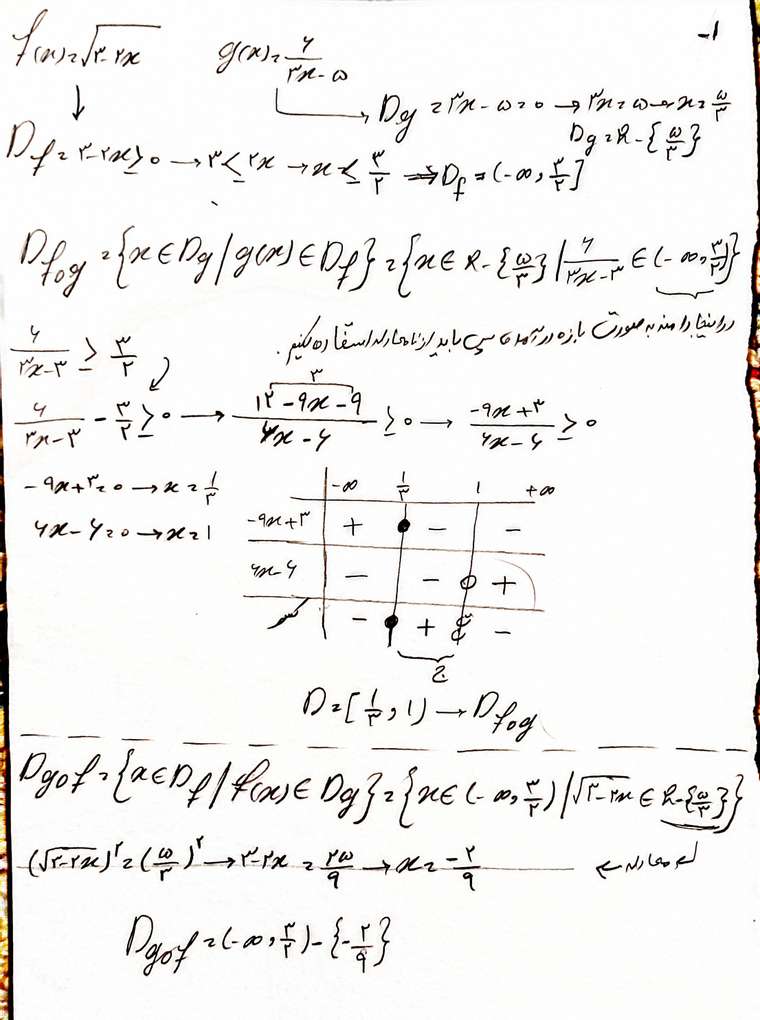 -۱
f(x)=√۳-۲x g(x)=۶/۳x-۵
D_g = ۳x-۵=۰ → ۳x=۵ → x=۵/۳
D_g=R-{۵/۳}
D_f = ۳-۲x≥۰ → ۳≤۲x → x≤۳/۲ ⇒ D_f=(-∞,۳/۲]
D_fog={x∈D_g/g(x)∈D_f}={x∈R-{۵/۳}|۶/۳x-۳∈(-∞,۳/۲]}
در اینجا دامنه به صورت بازه در آمده پس باید از نامعادله استفاده کنیم.
۶/۳x-۳ ≥ ۳/۲
۶/۳x-۳ - ۳/۲ ≥ ۰ → ۱۲-۹x-۹/۶x-۶ ≥ ۰ → -۹x+۳/۶x-۶ ≥ ۰
۳
-۹x+۳=۰ → x=۱/۳
۶x-۶=۰ → x=۱
-∞ ۱/۳ ۱ +∞
-۹x+۳ + - -
۶x-۶ - - +
کسر - + -
ج
D=[۱/۳,۱) → D_fog
D_gof={x∈D_f/f(x)∈D_g}={x∈(-∞,۳/۲)/√۳-۲x∈R-{۵/۳}}
(√۳-۲x)^۲=(۵/۳)^۲ → ۳-۲x=۲۵/۹ → x=-۲/۹
معادله
D_gof=(-∞,۳/۲)-{-۲/۹}